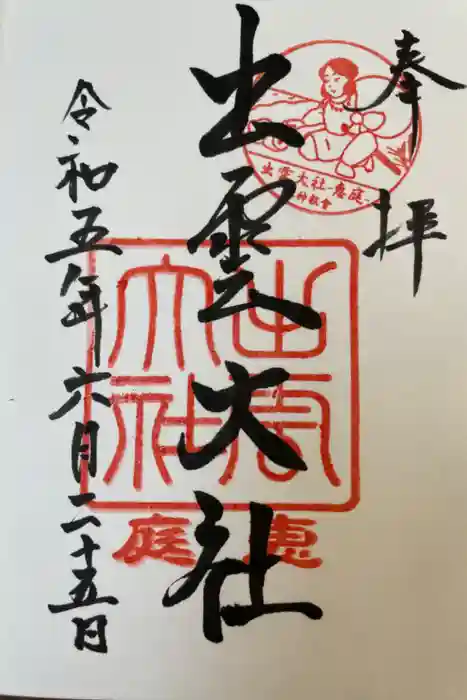 奉拝
出雲大社
令和五年六月二十五日
出雲大社
恵庭
出雲大社-恵庭-